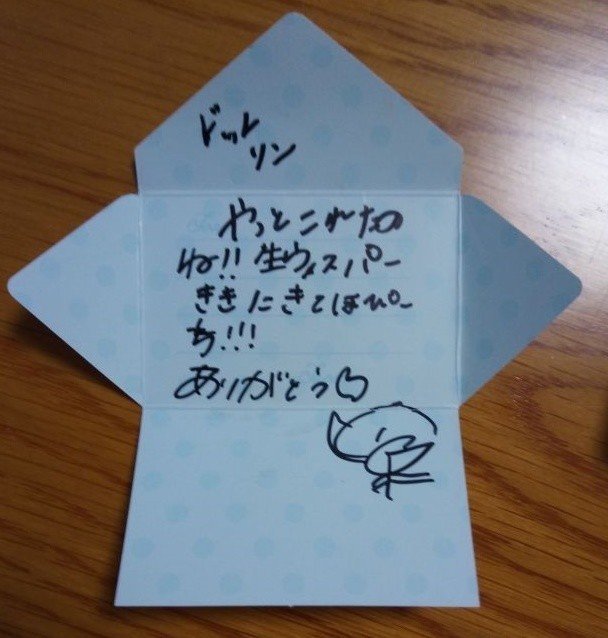 ドットレ
リン
やっとこれたの
ね!! 生ウィスパー
ききにきてほぴー
ち!!!
ありがとう♡